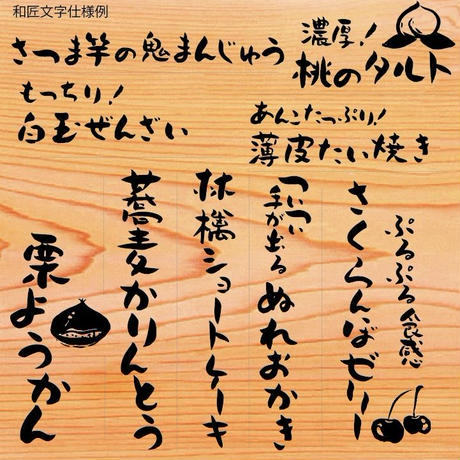 和匠文字仕様例
さつま芋の鬼まんじゅう
濃厚!
桃のタルト
もっちり!
白玉ぜんざい
あんこたっぷり!
薄皮たい焼き
ぷるぷる食感
さくらんぼゼリー
ついつい
手が出る
ぬれおかき
林檎ショートケーキ
蕎麦かりんとう
栗ようかん